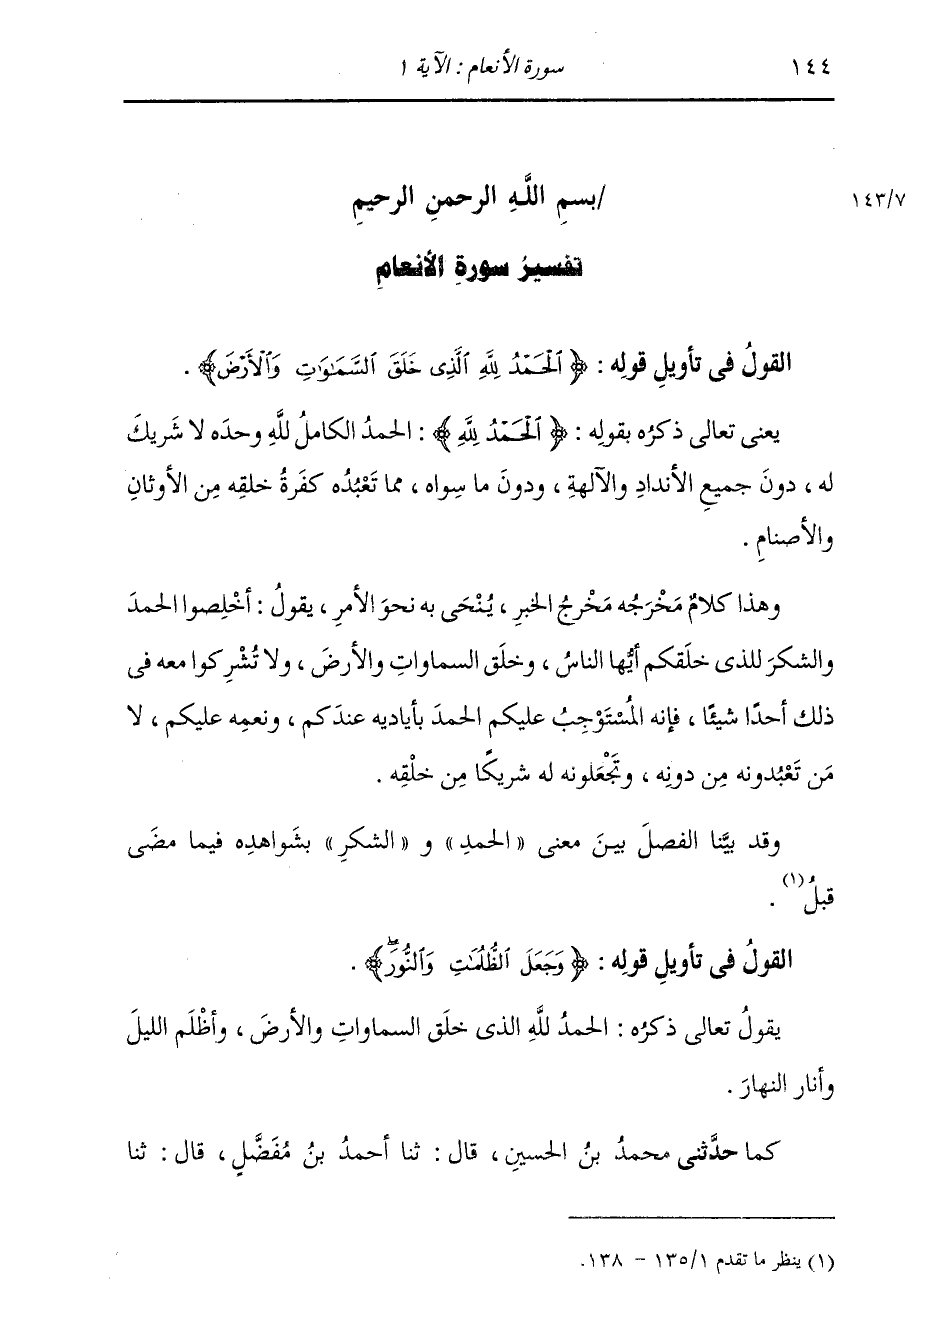 ١٤٤ سورة الأنعام : الآية ١
١٤٣/٧ /بسمِ اللَّهِ الرحمنِ الرحيمِ
تفسيرُ سورةِ الأنعامِ
القولُ فى تأويلِ قولِه : ﴿ ٱلْحَمْدُ لِلَّهِ ٱلَّذِى خَلَقَ ٱلسَّمَٰوَٰتِ وَٱلْأَرْضَ﴾ .
يعنى تعالى ذكرُه بقولِه : ﴿ ٱلْحَمْدُ لِلَّهِ ﴾ : الحمدُ الكاملُ للَّهِ وحدَه لا شريكَ
له ، دونَ جميعِ الأندادِ والآلهةِ ، ودونَ ما سِواه ، مما تَعْبُدُه كفَرةُ خلقِه مِن الأوثانِ
والأصنامِ .
وهذا كلامٌ مَخْرَجُه مَخْرجُ الخبرِ ، يُنْحَى به نحوَ الأمرِ ، يقولُ : أخْلِصوا الحمدَ
والشكرَ للذى خلَقكم أيُّها الناسُ ، وخلَق السماواتِ والأرضَ ، ولا تُشْرِكوا معه فى
ذلك أحدًا شيئًا ، فإنه المُسْتَوْجِبُ عليكم الحمدَ بأياديه عندَكم ، ونعمِه عليكم ، لا
مَن تَعْبُدونه مِن دونِه ، وتَجْعَلونه له شريكًا مِن خلْقِه .
وقد بيَّنا الفصلَ بينَ معنى « الحمدِ » و « الشكرِ » بشَواهدِه فيما مضَى
قبلُ(١) .
القولُ فى تأويلِ قولِه : ﴿ وَجَعَلَ ٱلظُّلُمَٰتِ وَٱلنُّورَۖ﴾ .
يقولُ تعالى ذكرُه : الحمدُ للَّهِ الذى خلَق السماواتِ والأرضَ ، وأظْلَم الليلَ
وأنار النهارَ .
كما حدَّثنى محمدُ بنُ الحسينِ ، قال : ثنا أحمدُ بنُ مُفَضَّلٍ ، قال : ثنا
(١) ينظر ما تقدم ١٣٥/١ – ١٣٨.